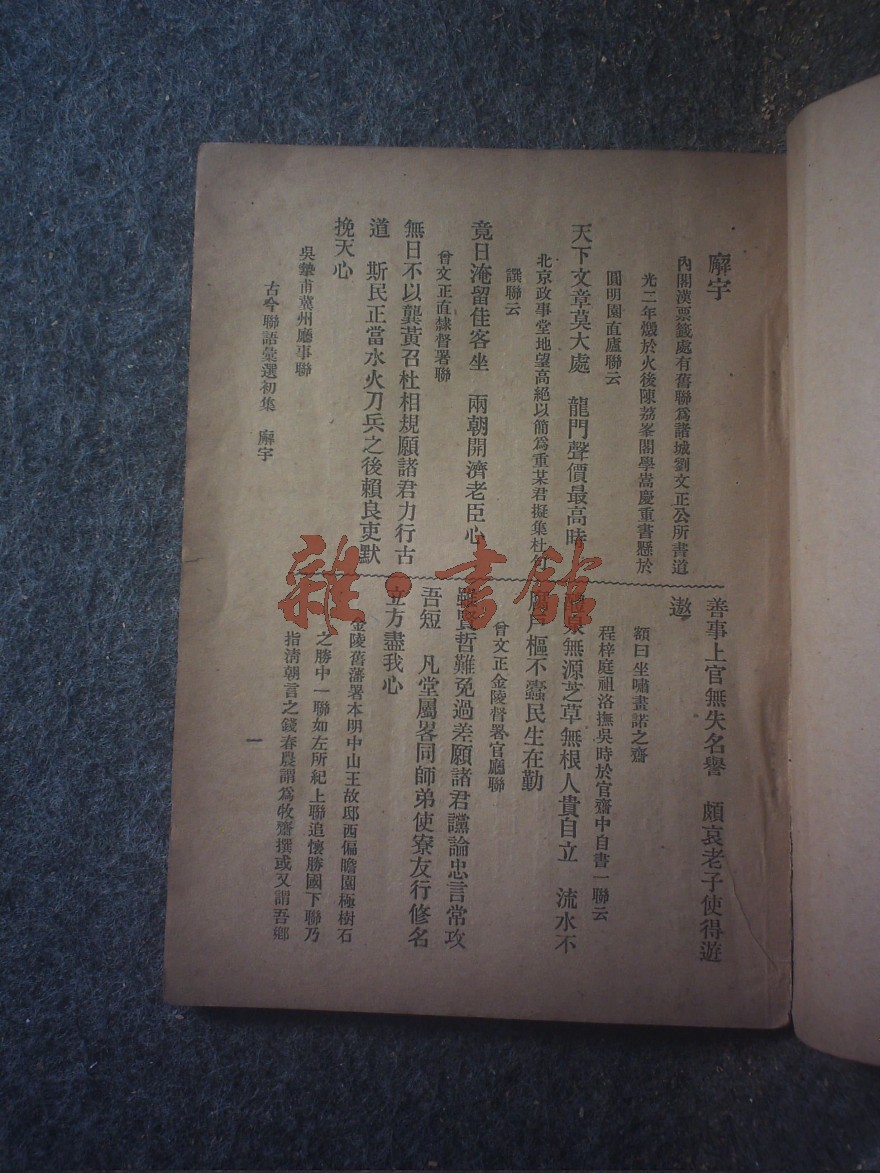 廨宇
內閣漢票籤處有舊聯爲諸城劉文正公所書道
光二年燬於火後陳荔峯閣學嵩慶重書懸於
圓明園直廬聯云
天下文章莫大處　龍門聲價最高時
北京政事堂地望高絕以簡爲重某君擬集杜句
讚聯云
竟日淹留佳客坐　兩朝開濟老臣心
曾文正直隸督署聯
無日不以龔黃召杜相規願諸君力行古
道　斯民正當水火刀兵之後賴良吏默
挽天心
吳摯甫冀州廳事聯
善事上官無失名譽　頗哀老子使得遊
遨
額曰坐嘯畫諾之齋
程梓庭祖洛撫吳時於官齋中自書一聯云
泉無源芝草無根人貴自立　流水不
戶樞不蠹民生在勤
曾文正金陵督署官廳聯
雖賢哲難免過差願諸君讜論忠言常攻
吾短　凡堂屬畧同師弟使寮友行修名
立方盡我心
金陵舊藩署本明中山王故邸西偏瞻園極樹石
之勝中一聯如左所紀上聯追懷勝國下聯乃
指淸朝言之錢春農謂爲牧齋撰或又謂吾鄉
古今聯語彙選初集　廨宇
一
雜·書館